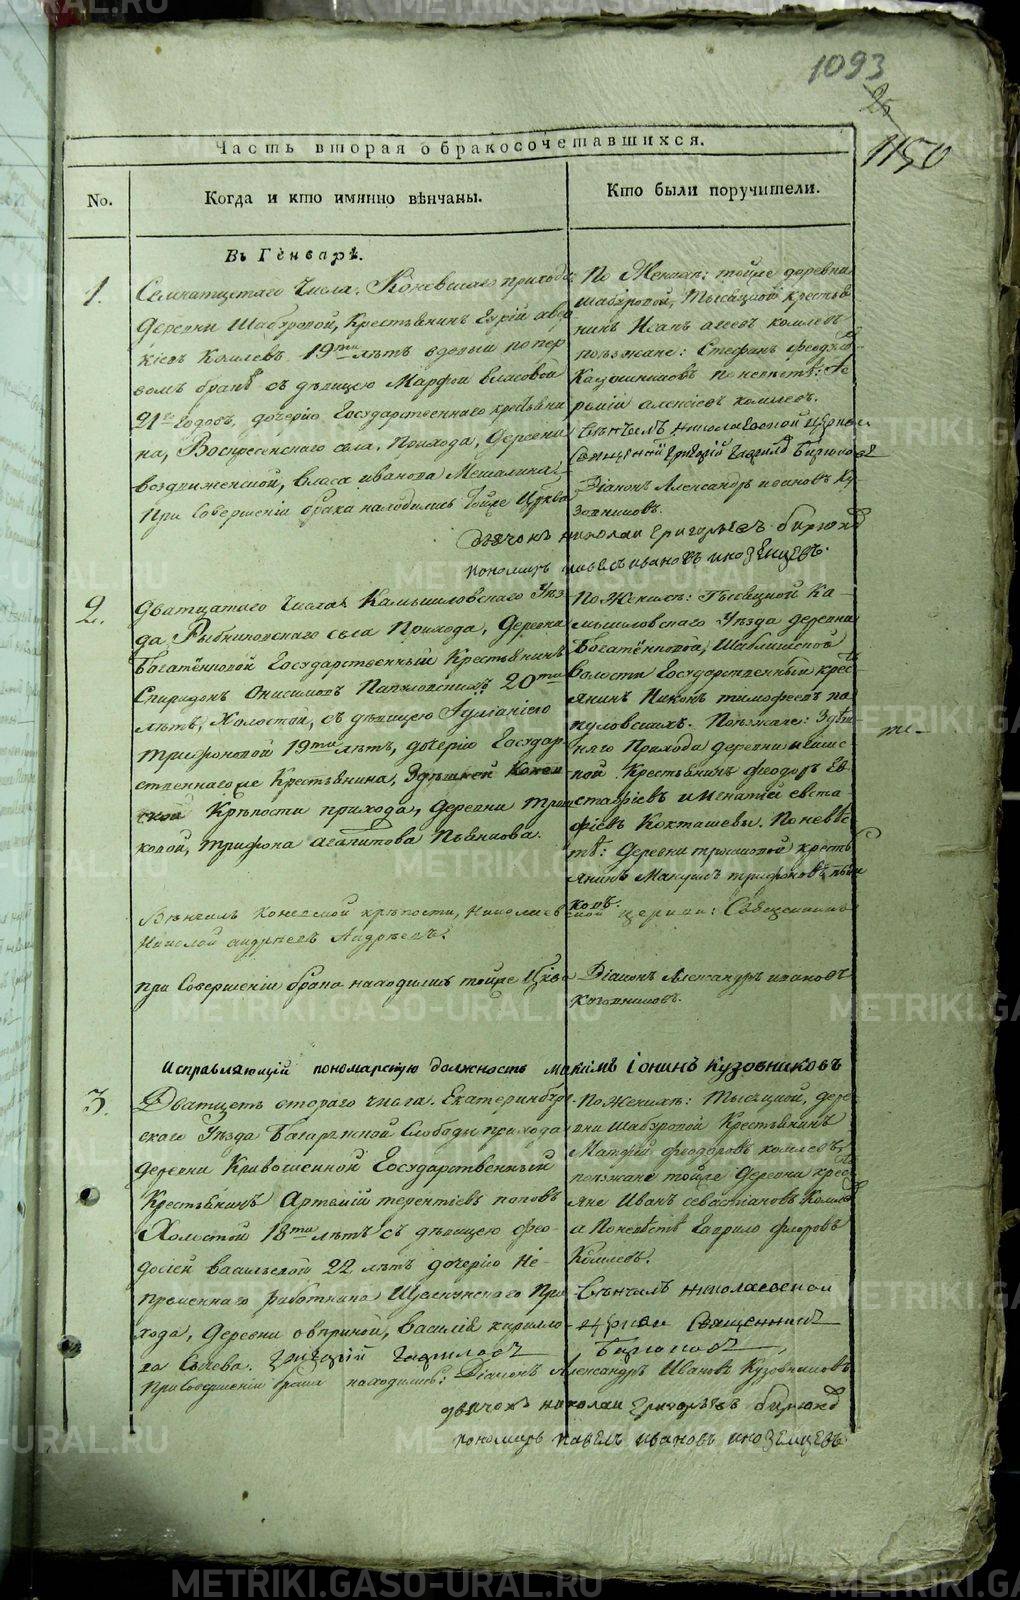 1093
25
1150
Часть вторая о бракосочетавшихся.
No.
Когда и кто имянно вѣнчаны.
Кто были поручители.
Въ Генварѣ.
1.
Семнатцетаго Числа. Коневскаго прихода
деревни Шабуровой, Крестьянинъ
Комлевъ 19ти лѣтъ вдовый по пер
вомъ бракѣ съ дѣвицею Марфой Власовой
21 годовъ, дочерію Государственнаго крестьяни
на, Воскресенскаго села, Прихода, Деревни
воздвиженской, Власа иванова Мешалина.
При Совершеніи брака находились тойже Церкви
По Женихѣ: тойже деревни
шабуровой, Тысяцкой крестья
нинъ Исакъ комлевъ
поѣзжане: Стефанъ
по невѣстѣ:
алексіевъ комлевъ.
вѣнчалъ николаевской церкви
Священникъ григорій гаврилов Бирюков
Діаконъ Александръ ивановъ Ку
зовниковъ.
дьячокъ николаи григорьевъ бирюков
пономарь павелъ ивановъ иноземцевъ.
2.
Дватцатаго Числа Камышловскаго Уѣз
да, Рыбниковскаго села Прихода, Деревни
Богатёнковой Государственный Крестьянинъ
Спиридонъ Онисимовъ Папуловскихъ 20ти
лѣтъ, Холостой, съ дѣвицею Іуліаніею
трифоновой 19ти лѣтъ, дочерію Государ
ственнаго же Крестьянина, Здѣшней Конев
ской Крѣпости прихода, Деревни трош
ковой, трифона агапитова Пьянкова.
По Женихѣ: Тысяцкой Ка-
мышловскаго Уѣзда деревни
Богатёнковой, Шаблишской
Волости Государственный крес
янинъ Никонъ тимофеевъ па
пуловскихъ. Поѣзжане: Здѣш
няго Прихода деревни
ной Крестьянинъ Феодоръ Ев
стафіевъ и Игнатій евста
фіевъ Кокташевы. По невѣс
тѣ: Деревни трошковой кресть
янинъ трифоновъ пьян
ковъ.
Вѣнчалъ Коневской крѣпости, Николаевской церкви: Священникъ
Николай андреевъ Андреевъ.
при Совершеніи брака находились тойже Цркви Діаконъ Александръ ивановъ
Кузовниковъ.
Исправляющій пономарскую должность макимъ іонинъ Кузовниковъ
3.
Дватцеть втораго числа. Екатеринбург
скаго Уѣзда Багаряцкой Слободы прихода
деревни Кривошеиной Государственный
Крестьянинъ Артемій терентіевъ поповъ
Холостой 18ти лѣтъ съ дѣвицею фео-
досіей васильевой 22 лѣтъ дочерію Не-
пременнаго работника При
хода, Деревни василія кирилло
ва григорій гаврилов
При Совершеніи брака находились: Діаконъ Александръ Ивановъ Кузовниковъ
По Женихѣ: Тысяцкой, дере
вни шабуровой Крестьянинъ
Матфей феодоровъ комлевъ,
поѣзжане тойже Деревни крес
яне Иванъ севастіановъ Комлевъ
а По невѣстѣ Гаврило
Комлевъ.
вѣнчалъ николаевской
цркви Священникъ
Бирюковъ,
дьячокъ николаи григорьевъ бирюков
пономарь павелъ ивановъ иноземцевъ
METRIKI.GASO-URAL.RU